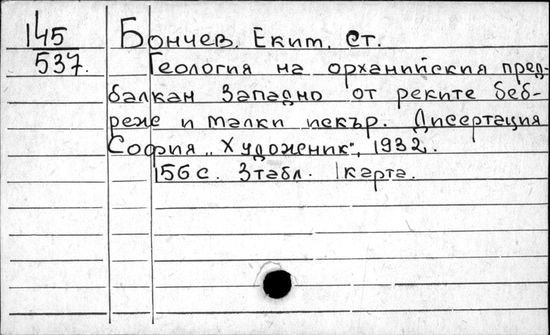 145
537.
Бончев. Еким. Ст.
Геология на орханийския пред-
балкан западно от реките беб-
реже и малки искър. Дисертация
София „Художник", 1932.
156 с. 3 табл. 1 карта.